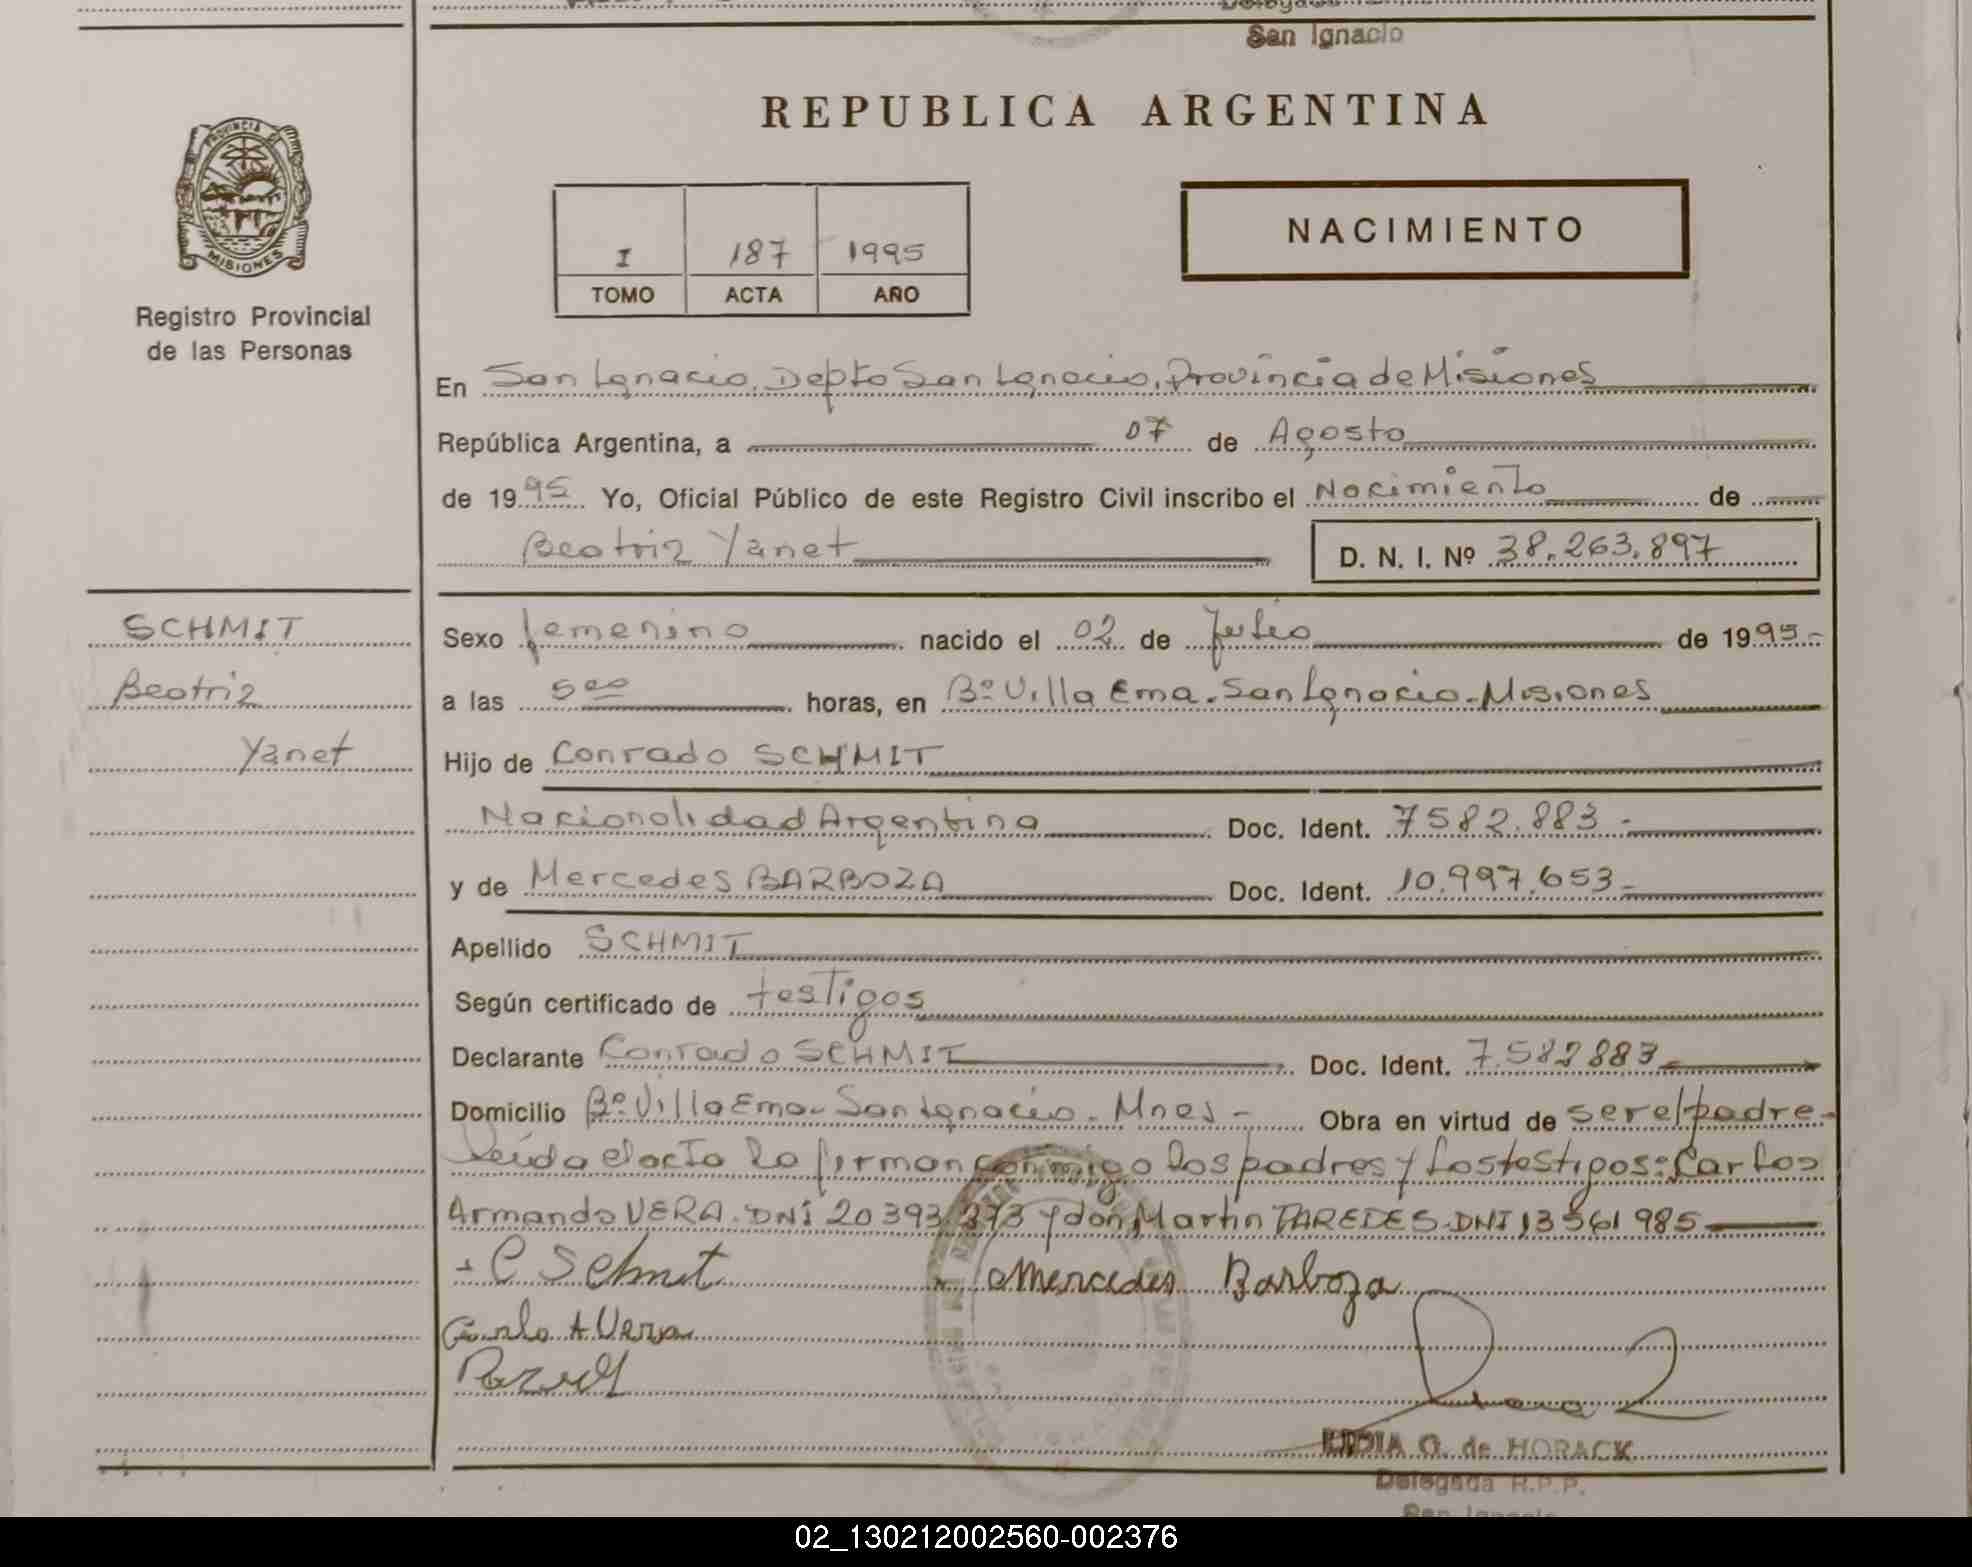 San Ignacio
REPUBLICA ARGENTINA
PROVINCIA DE
MISIONES
Registro Provincial
de las Personas
I 187 1995
TOMO ACTA AÑO
NACIMIENTO
En San Ignacio, Depto San Ignacio, Provincia de Misiones
República Argentina, a 07 de Agosto
de 1995 Yo, Oficial Público de este Registro Civil inscribo el Nacimiento de
Beatriz Yanet D. N. I. Nº 38.263.897
SCHMIT
Beatriz
Yanet
Sexo femenino nacido el 02 de Julio de 1995.-
a las 5 00 horas, en Bº Villa Ema. San Ignacio - Misiones
Hijo de Conrado SCHMIT
Nacionalidad Argentina Doc. Ident. 7582.883.-
y de Mercedes BARBOZA Doc. Ident. 10.997.653.-
Apellido SCHMIT
Según certificado de testigos
Declarante Conrado SCHMIT Doc. Ident. 7.582883
Domicilio Bº Villa Ema - San Ignacio - Mnes - Obra en virtud de ser el padre -
leída el acta la firman conmigo los padres y los testigos: Carlos
Armando VERA. DNI 20393.373 y don Martin PAREDES. DNI 13561985
C Schmit Mercedes Barboza
Carlo A Vera
LIDIA G. de HORACK
Delegada R.P.P.
San Ignacio
02_130212002560-002376